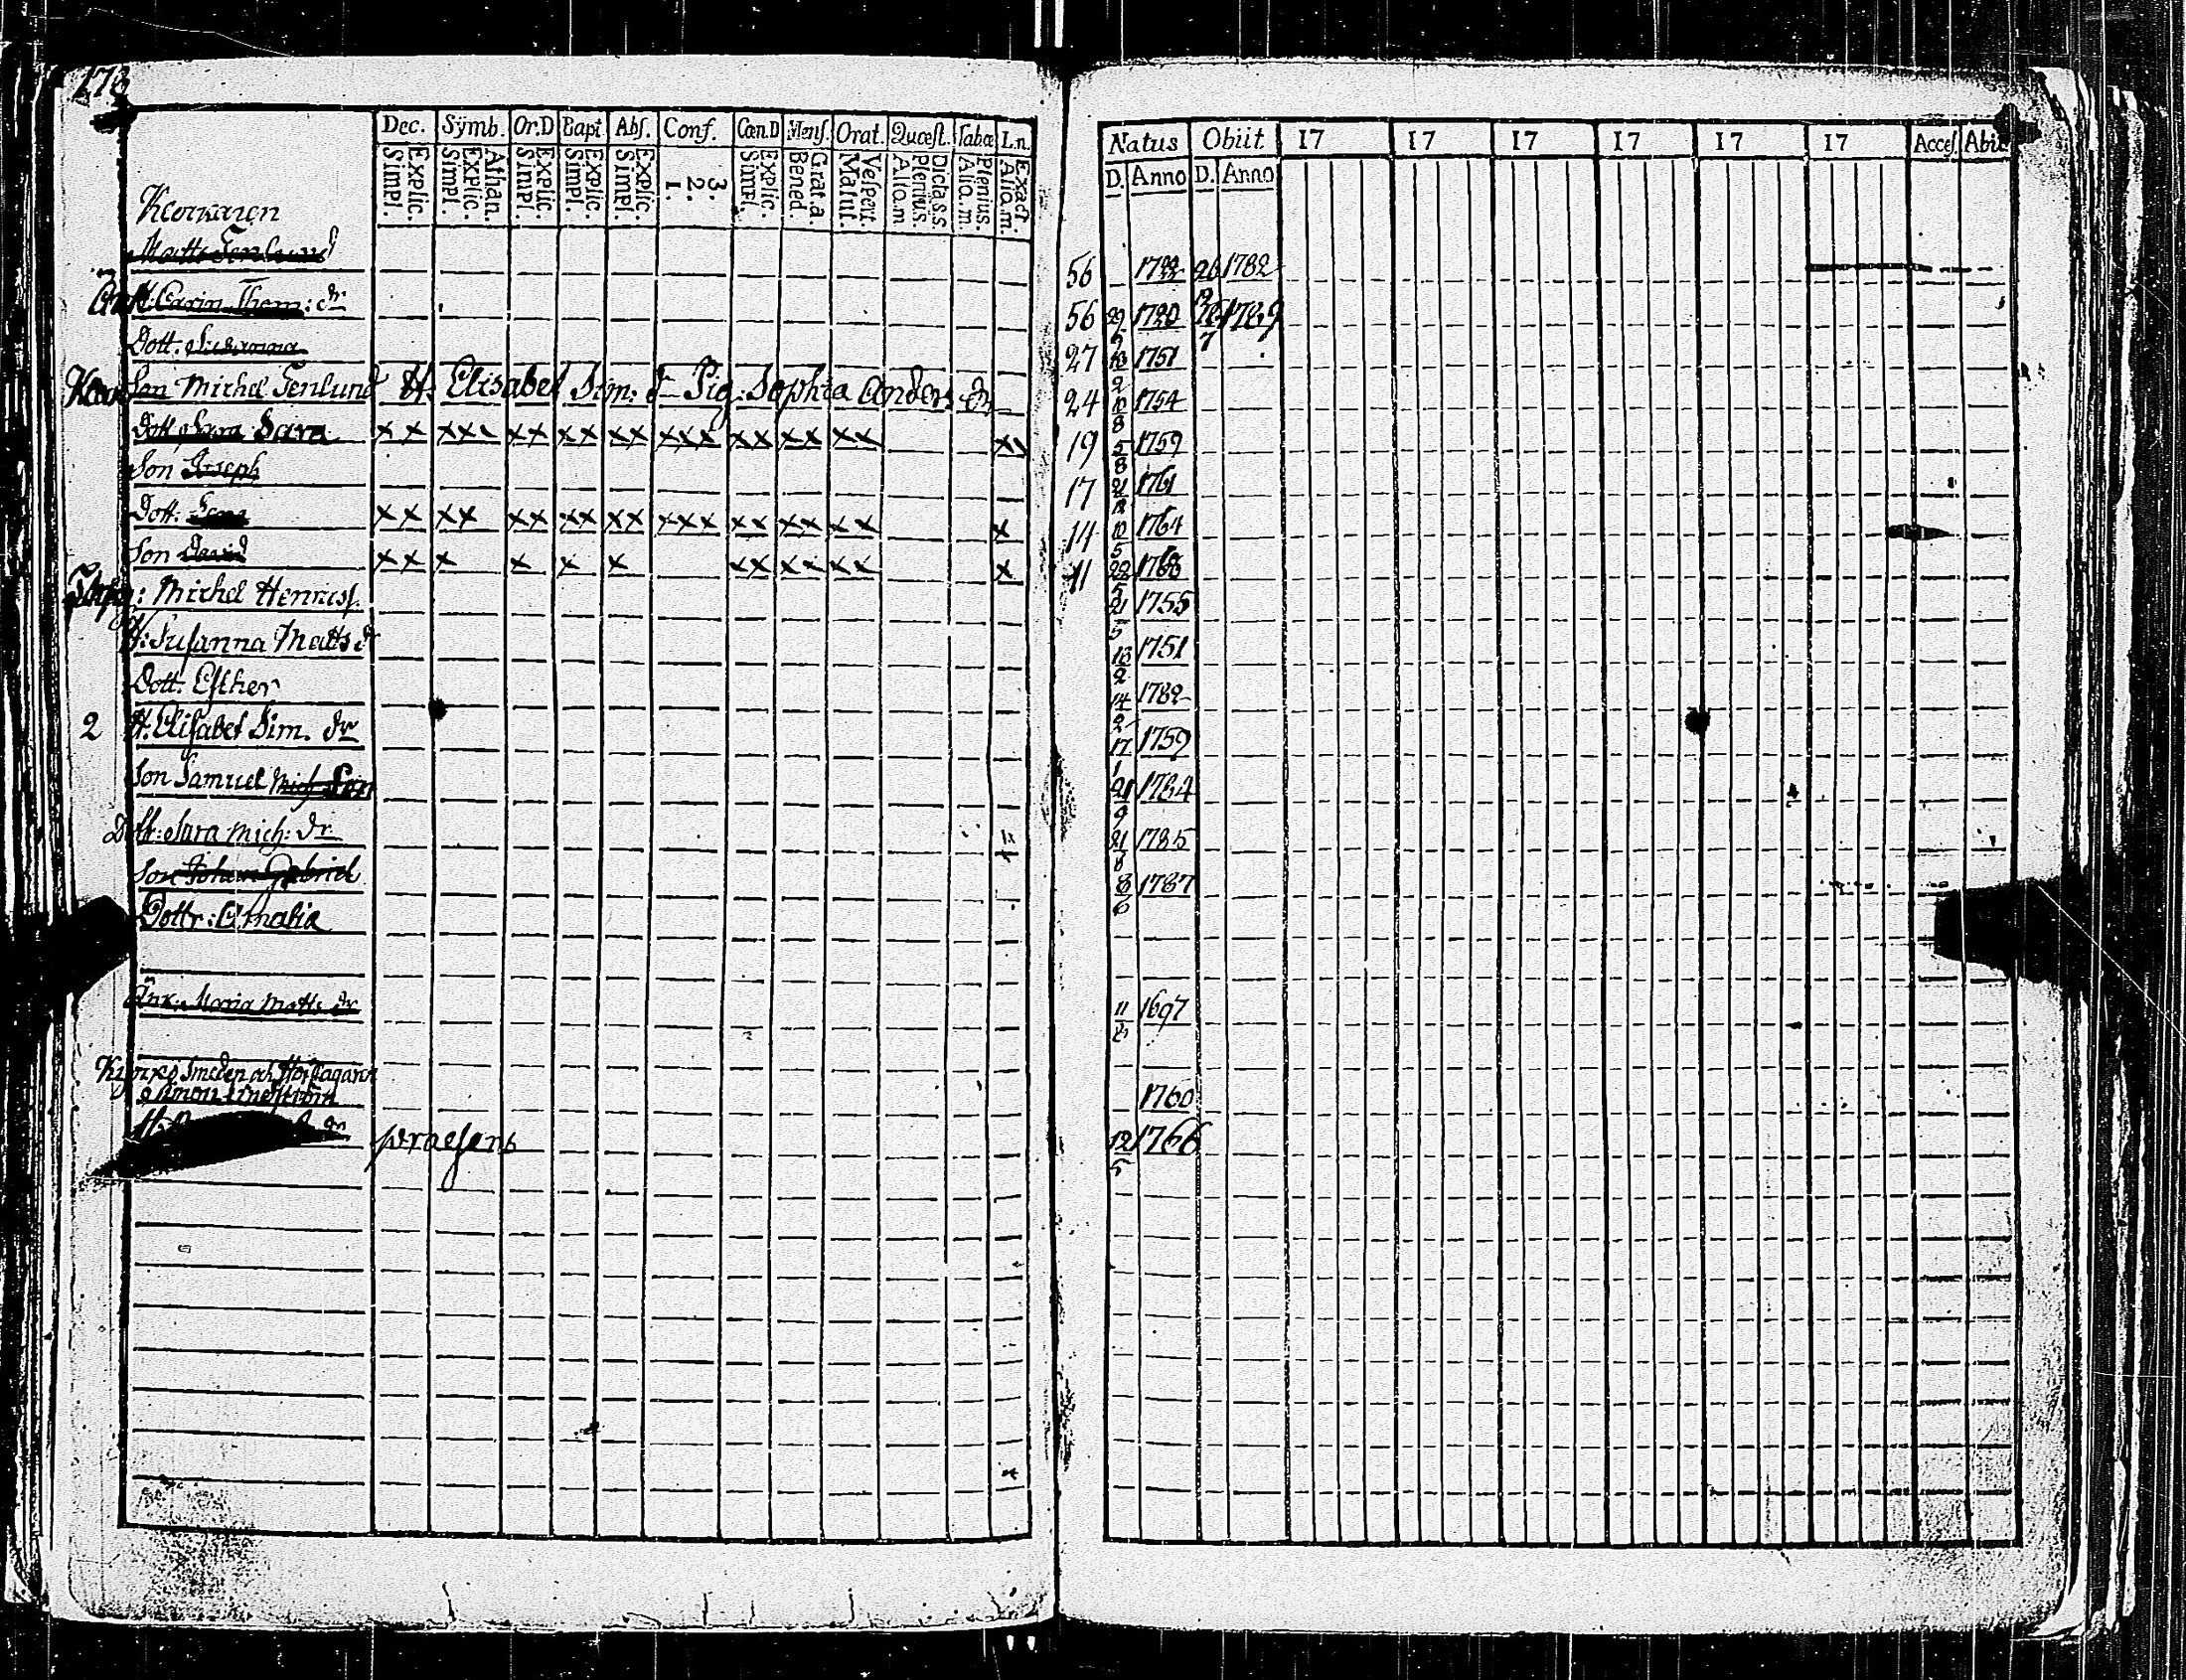 178
Dec. Sÿmb. Or.D Bapt. Abſ. Conf. Cœn.D Menſ. Orat. Quæſt. Tabæ L.n.
Explic. Simpl. Athan. Explic. Simpl. Explic. Simpl. Explic. Simpl. Explic. Simpl. 3. 2. 1. Explic. Simpl. Grat.a. Bened. Veſpert. Matut. Dicta.s.s. Plenius. Alio.m Plenius. Alio.m. Exact Alio.m.
Natus Obiit 17 17 17 17 17 17 Acceſ. Abit
D. Anno D. Anno
Matts Tenlund 56 1722 26 1782
Enk H: Carin Thom: dr 56 29 1720 1789
7
Dott. Susanna 27 1751
Son Michel Tenlund H. Elisabet Sim. d Pig: Sophia Anders dr 24 1754
8
Dott Sara Sara x x x x x x x x x x x x x x x x x x x x 19 5 1759
8
Son Joseph 17 21 1761
Dott. Lena x x x x x x x x x x x x x x x x x x x x 14 10 1764
5
Son David x x x x x x x x x x x x x 11 22 1768
5
: Michel Henricſ. 21 1755
5
H: Suſanna Matts dr 13 1751
2
Dott. Eſther 14 1782
2
2 H. Eliſabet Sim. dr 17 1759
1
Son Samuel Mich 21 1784
9
Dott: Sara Mich: dr 21 1785
8
Son Johan Gabriel 8 1787
6
Dottr: Amalia
Änk. Maria Matts dr 11 1697
2
Smeden och
Simon 1760
H: dr praeſens 12 1766
5